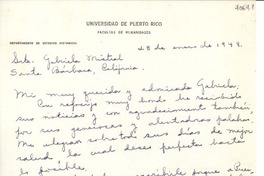 UNIVERSIDAD DE PUERTO RICO
FACULTAD DE HUMANIDADES
DEPARTAMENTO DE ESTUDIOS HISPANICOS
28 de enero de 1948.
Srta. Gabriela Mistral
Santa Bárbara, California.
Mi muy querida y admirada Gabriela,
Con regocijo muy hondo he recibido
sus noticias y con agradecimiento también
por sus generosas y alentadoras palabras.
Me alegran sobre todo sus días de mejor
salud la cual deseo perfecta hasta
lo posible.